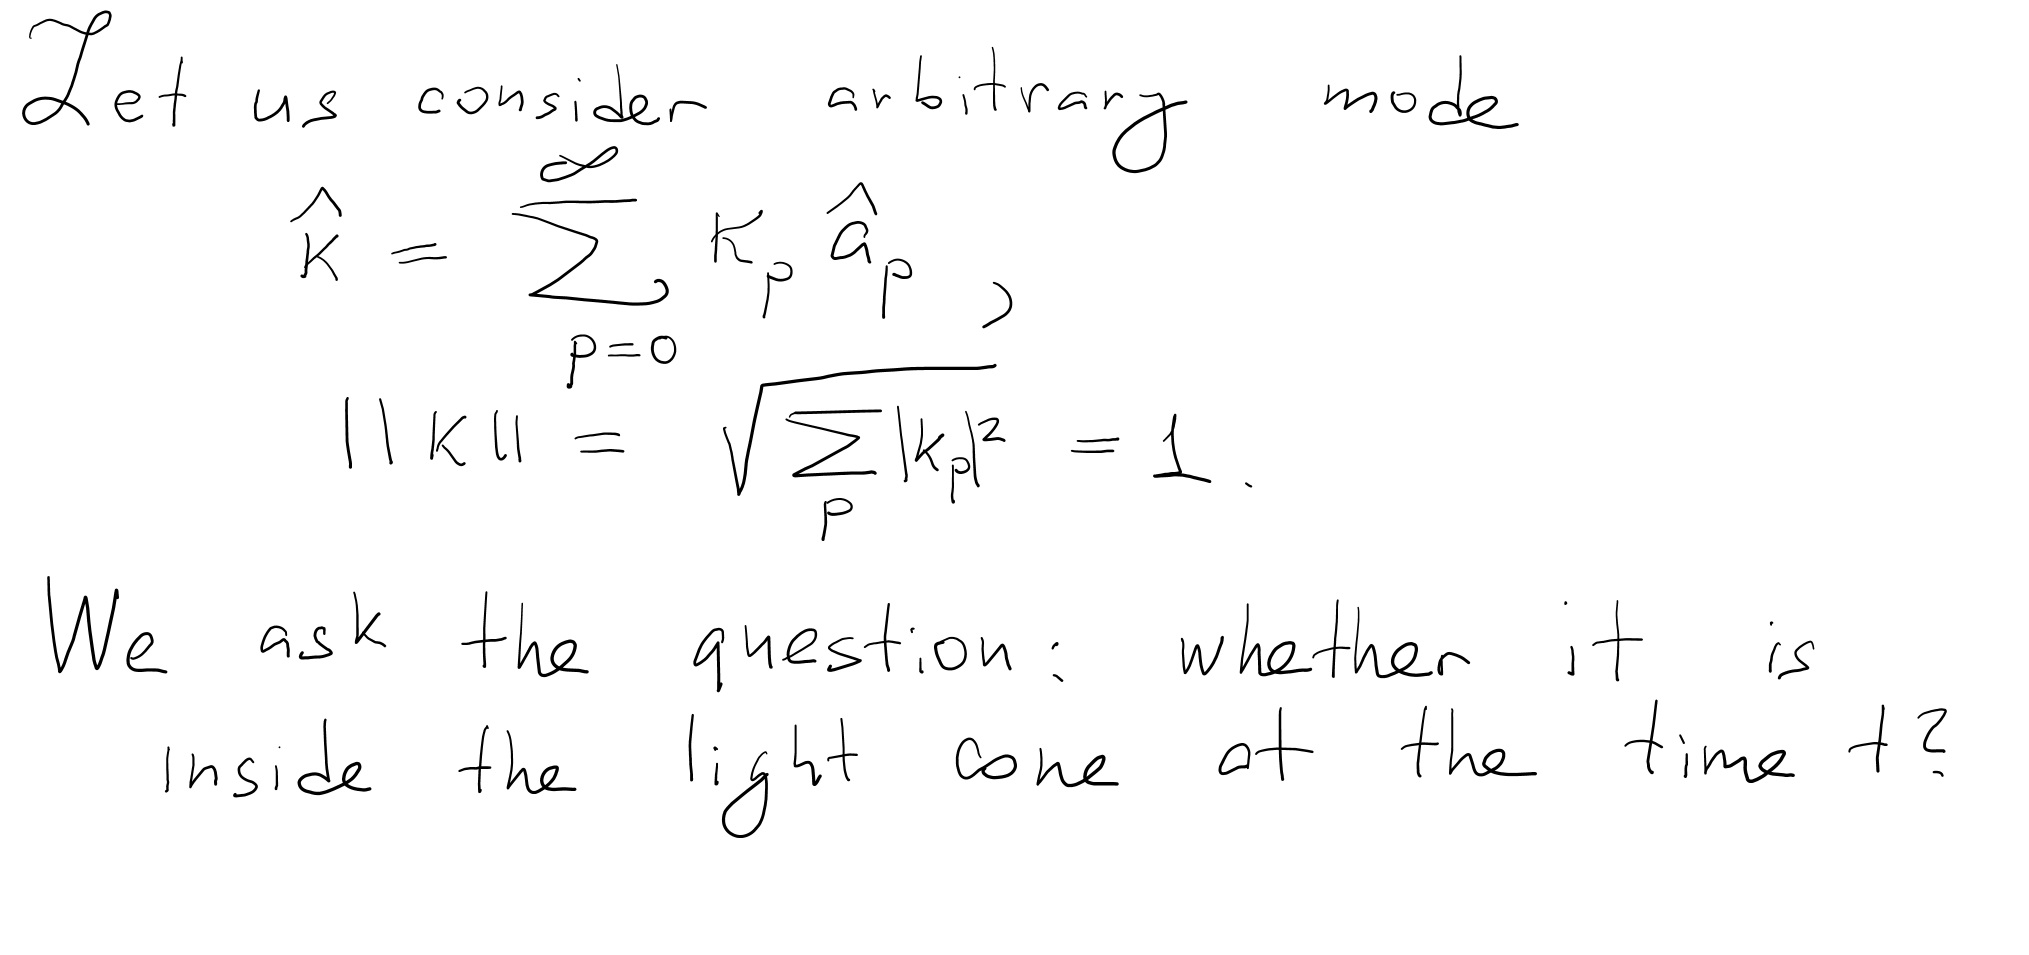 Let us consider arbitrary mode
k̂ = ∑_{p=0}^{∞} k_p â_p ,
||k|| = √(∑_p |k_p|²) = 1 .
We ask the question: whether it is
inside the light cone at the time t?